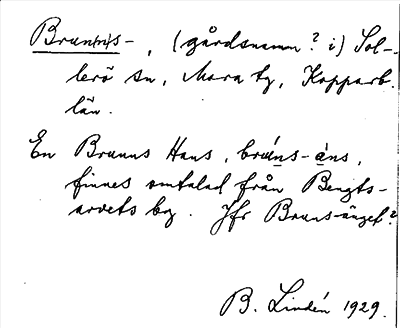 Brun(n)s-, (gårdsnamn? i) Sol-
lerö sn, Mora tg, Kopparb.
län.
En Brunns Hans, brúns-àns,
finnes omtalad från Bengts-
arvets by. Jfr Bruns-änget?
B. Lindén 1929.